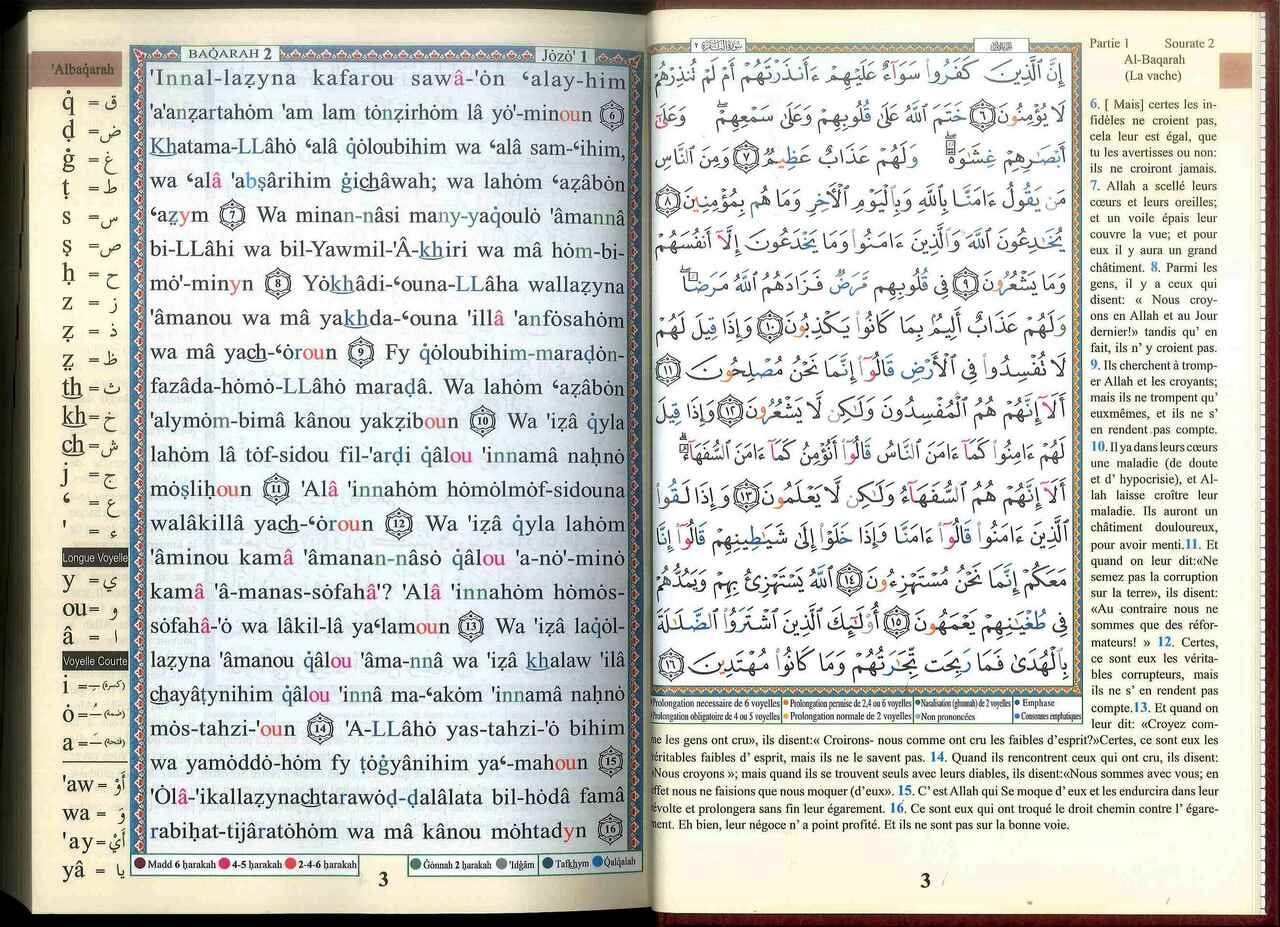 'Albaqarah
q̇ = ق
ḍ = ض
ġ = غ
ṭ = ط
s = س
ṣ = ص
ḥ = ح
z = ز
ẓ = ذ
ẓ = ظ
th = ث
kh = خ
ch = ش
j = ج
ʿ = ع
' = ء
Longue Voyelle
y = ي
ou = و
â = ا
Voyelle Courte
i = ـِ (كسرة)
ȯ = ـُ (ضمة)
a = ـَ (فتحة)
'aw = أَوْ
wa = وَ
'ay = أَيْ
yâ = يا
BAQ̇ARAH 2 Jȯzȯ' 1
'Innal-laẓyna kafarou sawâ-'ȯn ʿalay-him
'a'anẓartahȯm 'am lam tȯnẓirhȯm lâ yȯ'-minoun 6
Khatama-LLâhȯ ʿalâ q̇ȯloubihim wa ʿalâ sam-ʿihim,
wa ʿalâ 'abṣârihim ġichâwah; wa lahȯm ʿaẓâbȯn
ʿaẓym 7 Wa minan-nâsi many-yaqoulȯ 'âmannâ
bi-LLâhi wa bil-Yawmil-'Â-khiri wa mâ hȯm-bi-
mȯ'-minyn 8 Yȯkhâdi-ʿouna-LLâha wallaẓyna
'âmanou wa mâ yakhda-ʿouna 'illâ 'anfȯsahȯm
wa mâ yach-ʿȯroun 9 Fy q̇ȯloubihim-maraḍȯn-
fazâda-hȯmȯ-LLâhȯ maraḍâ. Wa lahȯm ʿaẓâbȯn
'alymȯm-bimâ kânou yakẓiboun 10 Wa 'iẓâ q̇yla
lahȯm lâ tȯf-sidou fil-'arḍi q̇âlou 'innamâ naḥnȯ
mȯṣliḥoun 11 'Alâ 'innahȯm hȯmȯlmȯf-sidouna
walâkillâ yach-ʿȯroun 12 Wa 'iẓâ q̇yla lahȯm
'âminou kamâ 'âmanan-nâsȯ q̇âlou 'a-nȯ'-minȯ
kamâ 'â-manas-sȯfahâ'? 'Alâ 'innahȯm hȯmȯs-
sȯfahâ-'ȯ wa lâkil-lâ yaʿlamoun 13 Wa 'iẓâ laq̇ȯl-
laẓyna 'âmanou q̇âlou 'âma-nnâ wa 'iẓâ khalaw 'ilâ
chayâṭynihim q̇âlou 'innâ ma-ʿakȯm 'innamâ naḥnȯ
mȯs-tahzi-'oun 14 'A-LLâhȯ yas-tahzi-'ȯ bihim
wa yamȯddȯ-hȯm fy ṭȯġyânihim yaʿ-mahoun 15
'Ȯlâ-'ikallaẓynachtarawȯḍ-ḍalâlata bil-hȯdâ famâ
rabiḥat-tijâratȯhȯm wa mâ kânou mȯhtadyn 16
Madd 6 ḥarakah 4-5 ḥarakah 2-4-6 ḥarakah Ġȯnnah 2 ḥarakah 'Idġâm Tafkhym Q̇alq̇alah
3
سورة البقرة ٢
إِنَّ ٱلَّذِينَ كَفَرُوا۟ سَوَآءٌ عَلَيْهِمْ ءَأَنذَرْتَهُمْ أَمْ لَمْ تُنذِرْهُمْ
لَا يُؤْمِنُونَ ٦ خَتَمَ ٱللَّهُ عَلَىٰ قُلُوبِهِمْ وَعَلَىٰ سَمْعِهِمْ ۖ وَعَلَىٰٓ
أَبْصَٰرِهِمْ غِشَٰوَةٌ ۖ وَلَهُمْ عَذَابٌ عَظِيمٌ ٧ وَمِنَ ٱلنَّاسِ
مَن يَقُولُ ءَامَنَّا بِٱللَّهِ وَبِٱلْيَوْمِ ٱلْءَاخِرِ وَمَا هُم بِمُؤْمِنِينَ ٨
يُخَٰدِعُونَ ٱللَّهَ وَٱلَّذِينَ ءَامَنُوا۟ وَمَا يَخْدَعُونَ إِلَّآ أَنفُسَهُمْ
وَمَا يَشْعُرُونَ ٩ فِى قُلُوبِهِم مَّرَضٌ فَزَادَهُمُ ٱللَّهُ مَرَضًا ۖ
وَلَهُمْ عَذَابٌ أَلِيمٌۢ بِمَا كَانُوا۟ يَكْذِبُونَ ١٠ وَإِذَا قِيلَ لَهُمْ
لَا تُفْسِدُوا۟ فِى ٱلْأَرْضِ قَالُوٓا۟ إِنَّمَا نَحْنُ مُصْلِحُونَ ١١
أَلَآ إِنَّهُمْ هُمُ ٱلْمُفْسِدُونَ وَلَٰكِن لَّا يَشْعُرُونَ ١٢ وَإِذَا قِيلَ
لَهُمْ ءَامِنُوا۟ كَمَآ ءَامَنَ ٱلنَّاسُ قَالُوٓا۟ أَنُؤْمِنُ كَمَآ ءَامَنَ ٱلسُّفَهَآءُ ۗ
أَلَآ إِنَّهُمْ هُمُ ٱلسُّفَهَآءُ وَلَٰكِن لَّا يَعْلَمُونَ ١٣ وَإِذَا لَقُوا۟
ٱلَّذِينَ ءَامَنُوا۟ قَالُوٓا۟ ءَامَنَّا وَإِذَا خَلَوْا۟ إِلَىٰ شَيَٰطِينِهِمْ قَالُوٓا۟ إِنَّا
مَعَكُمْ إِنَّمَا نَحْنُ مُسْتَهْزِءُونَ ١٤ ٱللَّهُ يَسْتَهْزِئُ بِهِمْ وَيَمُدُّهُمْ
فِى طُغْيَٰنِهِمْ يَعْمَهُونَ ١٥ أُو۟لَٰٓئِكَ ٱلَّذِينَ ٱشْتَرَوُا۟ ٱلضَّلَٰلَةَ
بِٱلْهُدَىٰ فَمَا رَبِحَت تِّجَٰرَتُهُمْ وَمَا كَانُوا۟ مُهْتَدِينَ ١٦
Prolongation necessaire de 6 voyelles Prolongation permise de 2,4 ou 6 voyelles Nasalisation (ghunnah) de 2 voyelles Emphase
Prolongation obligatoire de 4 ou 5 voyelles Prolongation normale de 2 voyelles Non prononcées Consonnes emphatiques
Partie 1 Sourate 2
Al-Baqarah
(La vache)
6. [ Mais] certes les in-
fidèles ne croient pas,
cela leur est égal, que
tu les avertisses ou non:
ils ne croiront jamais.
7. Allah a scellé leurs
cœurs et leurs oreilles;
et un voile épais leur
couvre la vue; et pour
eux il y aura un grand
châtiment. 8. Parmi les
gens, il y a ceux qui
disent: « Nous croy-
ons en Allah et au Jour
dernier!» tandis qu' en
fait, ils n' y croient pas.
9. Ils cherchent à tromp-
er Allah et les croyants;
mais ils ne trompent qu'
euxmêmes, et ils ne s'
en rendent pas compte.
10. Il ya dans leurs cœurs
une maladie (de doute
et d' hypocrisie), et Al-
lah laisse croître leur
maladie. Ils auront un
châtiment douloureux,
pour avoir menti.11. Et
quand on leur dit:«Ne
semez pas la corruption
sur la terre», ils disent:
«Au contraire nous ne
sommes que des réfor-
mateurs! » 12. Certes,
ce sont eux les vérita-
bles corrupteurs, mais
ils ne s' en rendent pas
compte.13. Et quand on
leur dit: «Croyez com-
me les gens ont cru», ils disent:« Croirons- nous comme ont cru les faibles d'esprit?»Certes, ce sont eux les
véritables faibles d' esprit, mais ils ne le savent pas. 14. Quand ils rencontrent ceux qui ont cru, ils disent:
«Nous croyons »; mais quand ils se trouvent seuls avec leurs diables, ils disent:«Nous sommes avec vous; en
effet nous ne faisions que nous moquer (d'eux». 15. C' est Allah qui Se moque d' eux et les endurcira dans leur
révolte et prolongera sans fin leur égarement. 16. Ce sont eux qui ont troqué le droit chemin contre l' égare-
ment. Eh bien, leur négoce n' a point profité. Et ils ne sont pas sur la bonne voie.
3